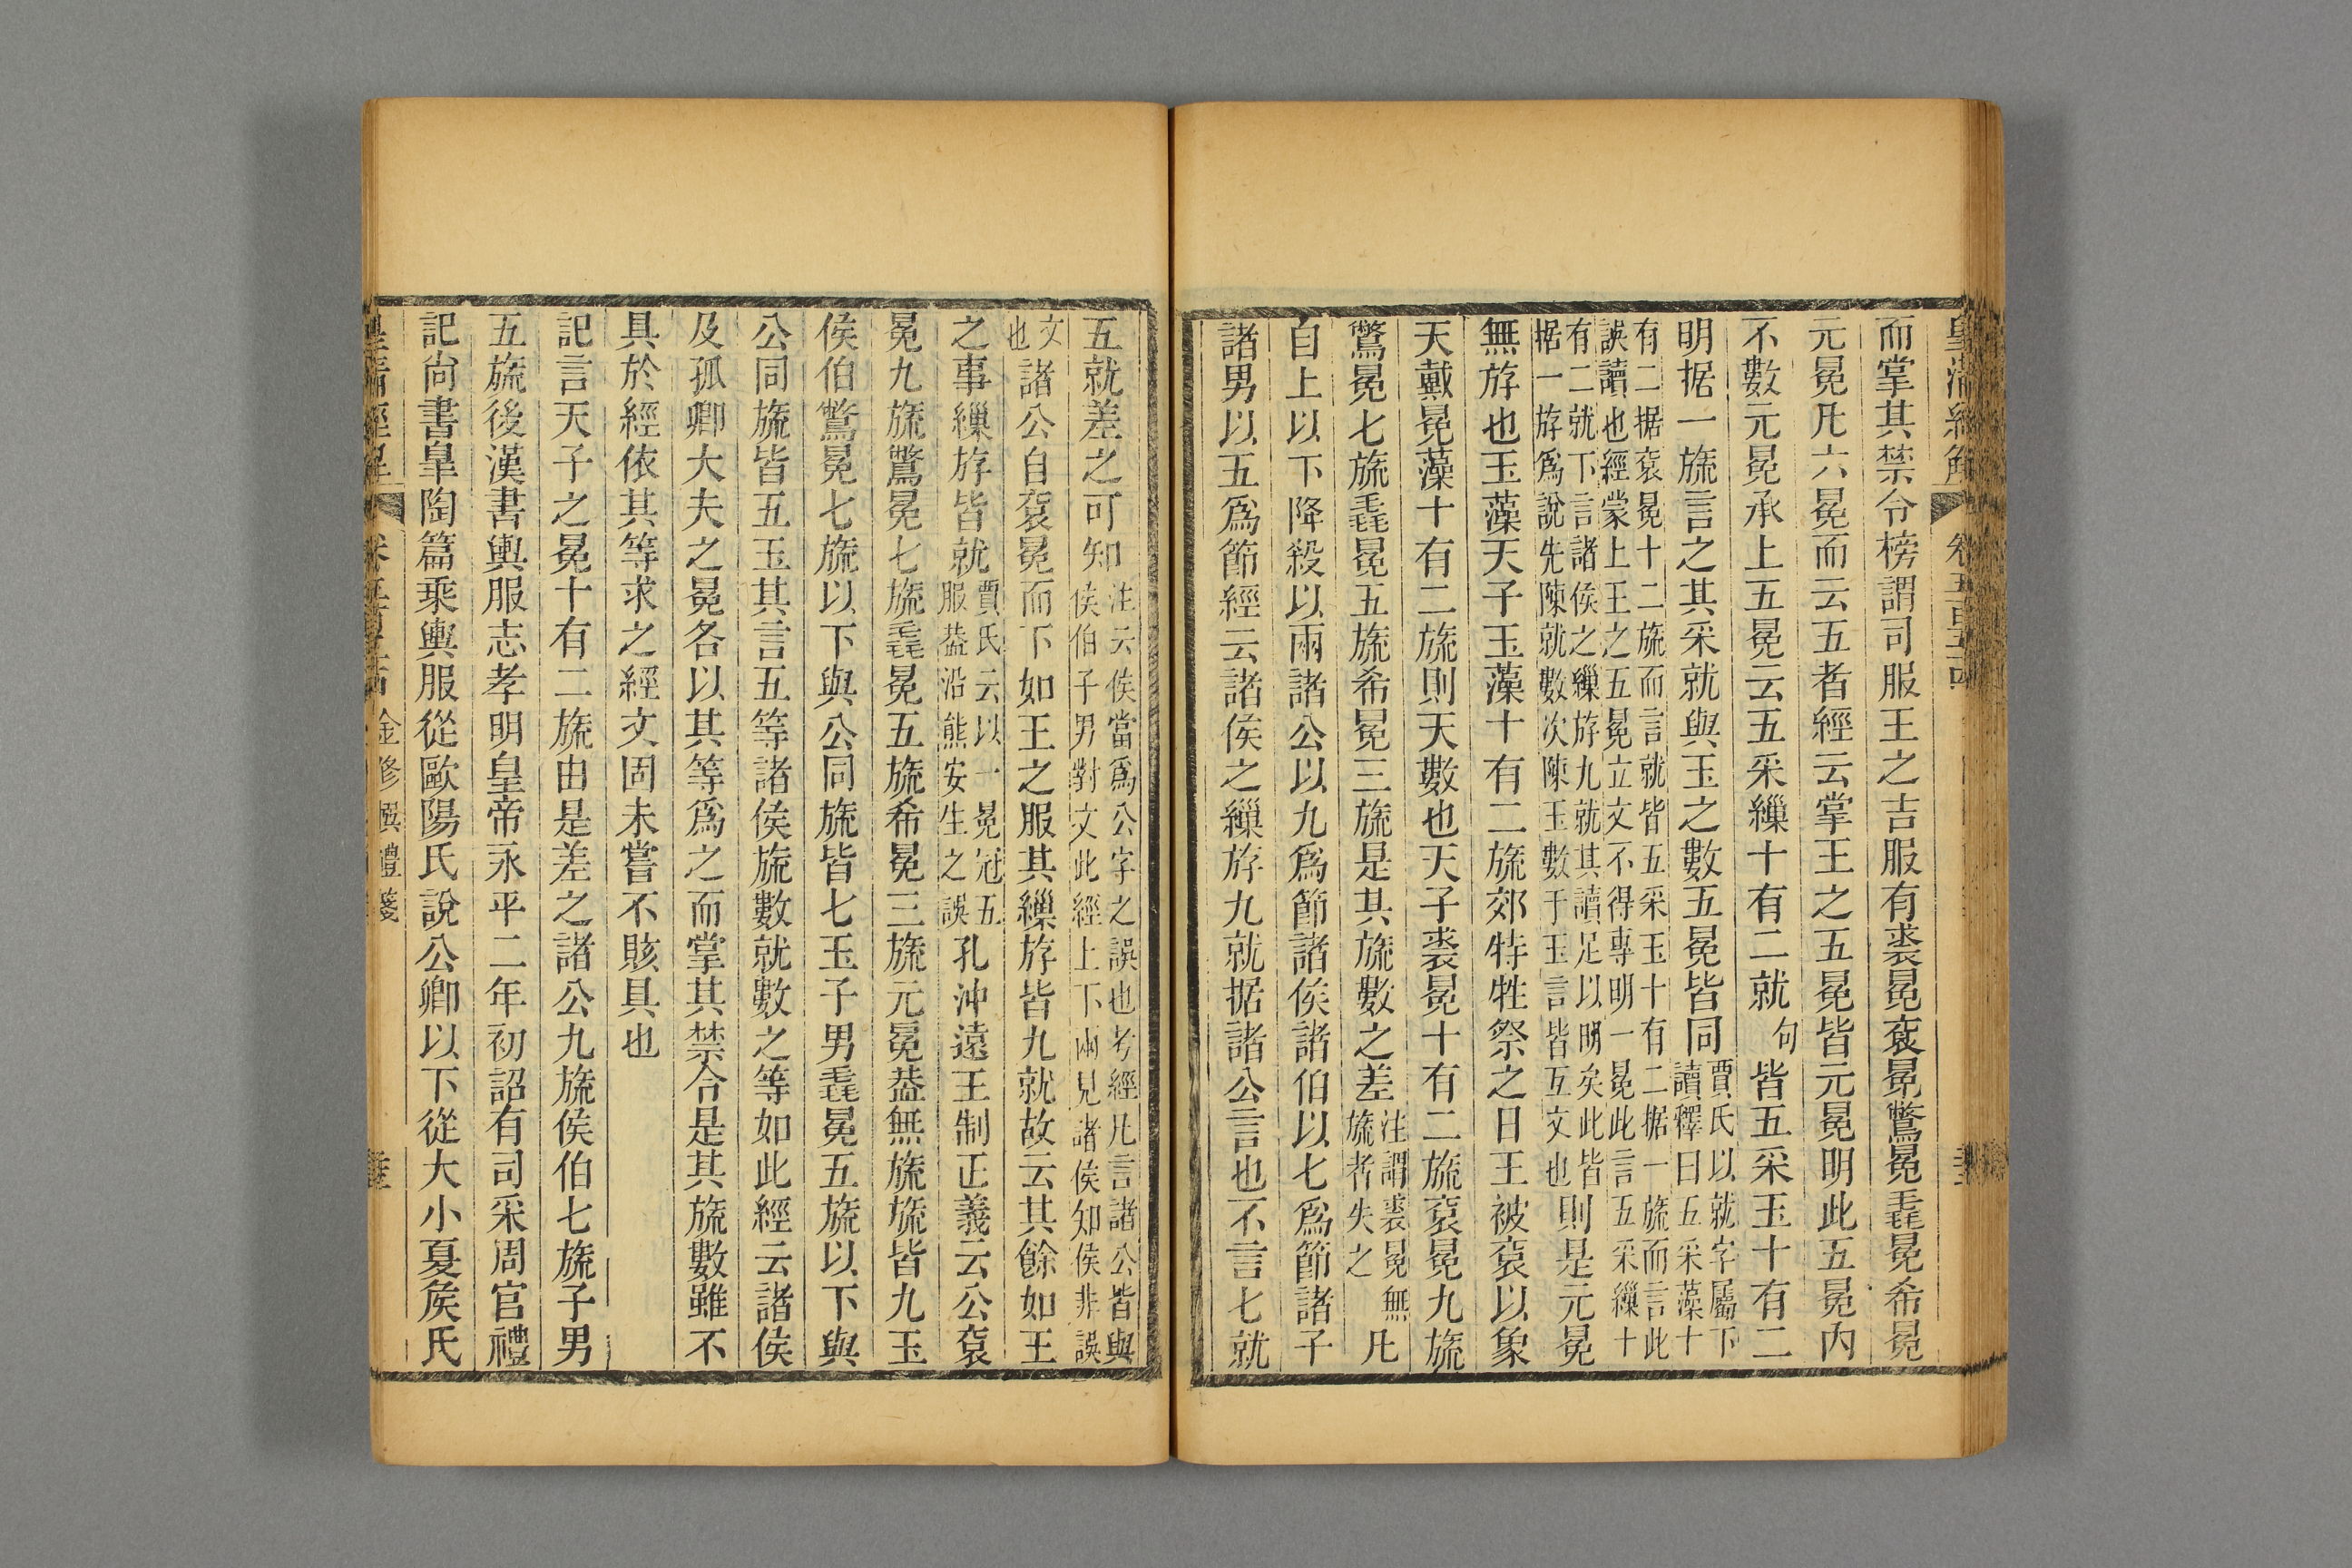 皇清經解 卷五百五十四
而掌其禁令榜謂司服王之吉服有裘冕袞冕鷩冕毳冕希冕
元冕凡六冕而云五者經云掌王之五冕皆元冕明此五冕內
不數元冕承上五冕云五采繅十有二就句皆五采玉十有二
明据一旒言之其采就與玉之數五冕皆同賈氏以就字屬下讀釋曰五采藻十
有二据袞冕十二旒而言就皆五采玉十有二据一旒而言此誤讀也經蒙上王之五冕立文不得專明一冕此言五采繅十
有二就下言諸侯之繅斿九就其讀足以明矣此皆据一斿爲說先陳就數次陳玉數于玉言皆互文也則是元冕
無斿也玉藻天子玉藻十有二旒郊特牲祭之日王被袞以象
天戴冕藻十有二旒則天數也天子裘冕十有二旒袞冕九旒
鷩冕七旒毳冕五旒希冕三旒是其旒數之差注謂裘冕無旒者失之凡
自上以下降殺以兩諸公以九爲節諸侯諸伯以七爲節諸子
諸男以五爲節經云諸侯之繅斿九就据諸公言也不言七就
五就差之可知注云侯當爲公字之誤也考經凡言諸公皆與侯伯子男對文此經上下兩見諸侯知侯非誤
文也諸公自袞冕而下如王之服其繅斿皆九就故云其餘如王
之事繅斿皆就賈氏云以一冕冠五服葢沿熊安生之誤孔沖遠王制正義云公袞
冕九旒鷩冕七旒毳冕五旒希冕三旒元冕葢無旒旒皆九玉
侯伯鷩冕七旒以下與公同旒皆七玉子男毳冕五旒以下與
公同旒皆五玉其言五等諸侯旒數就數之等如此經云諸侯
及孤卿大夫之冕各以其等爲之而掌其禁令是其旒數雖不
具於經依其等求之經文固未嘗不賅具也
記言天子之冕十有二旒由是差之諸公九旒侯伯七旒子男
五旒後漢書輿服志孝明皇帝永平二年初詔有司采周官禮
記尚書皐陶篇乘輿服從歐陽氏說公卿以下從大小夏矦氏
金修撰禮箋